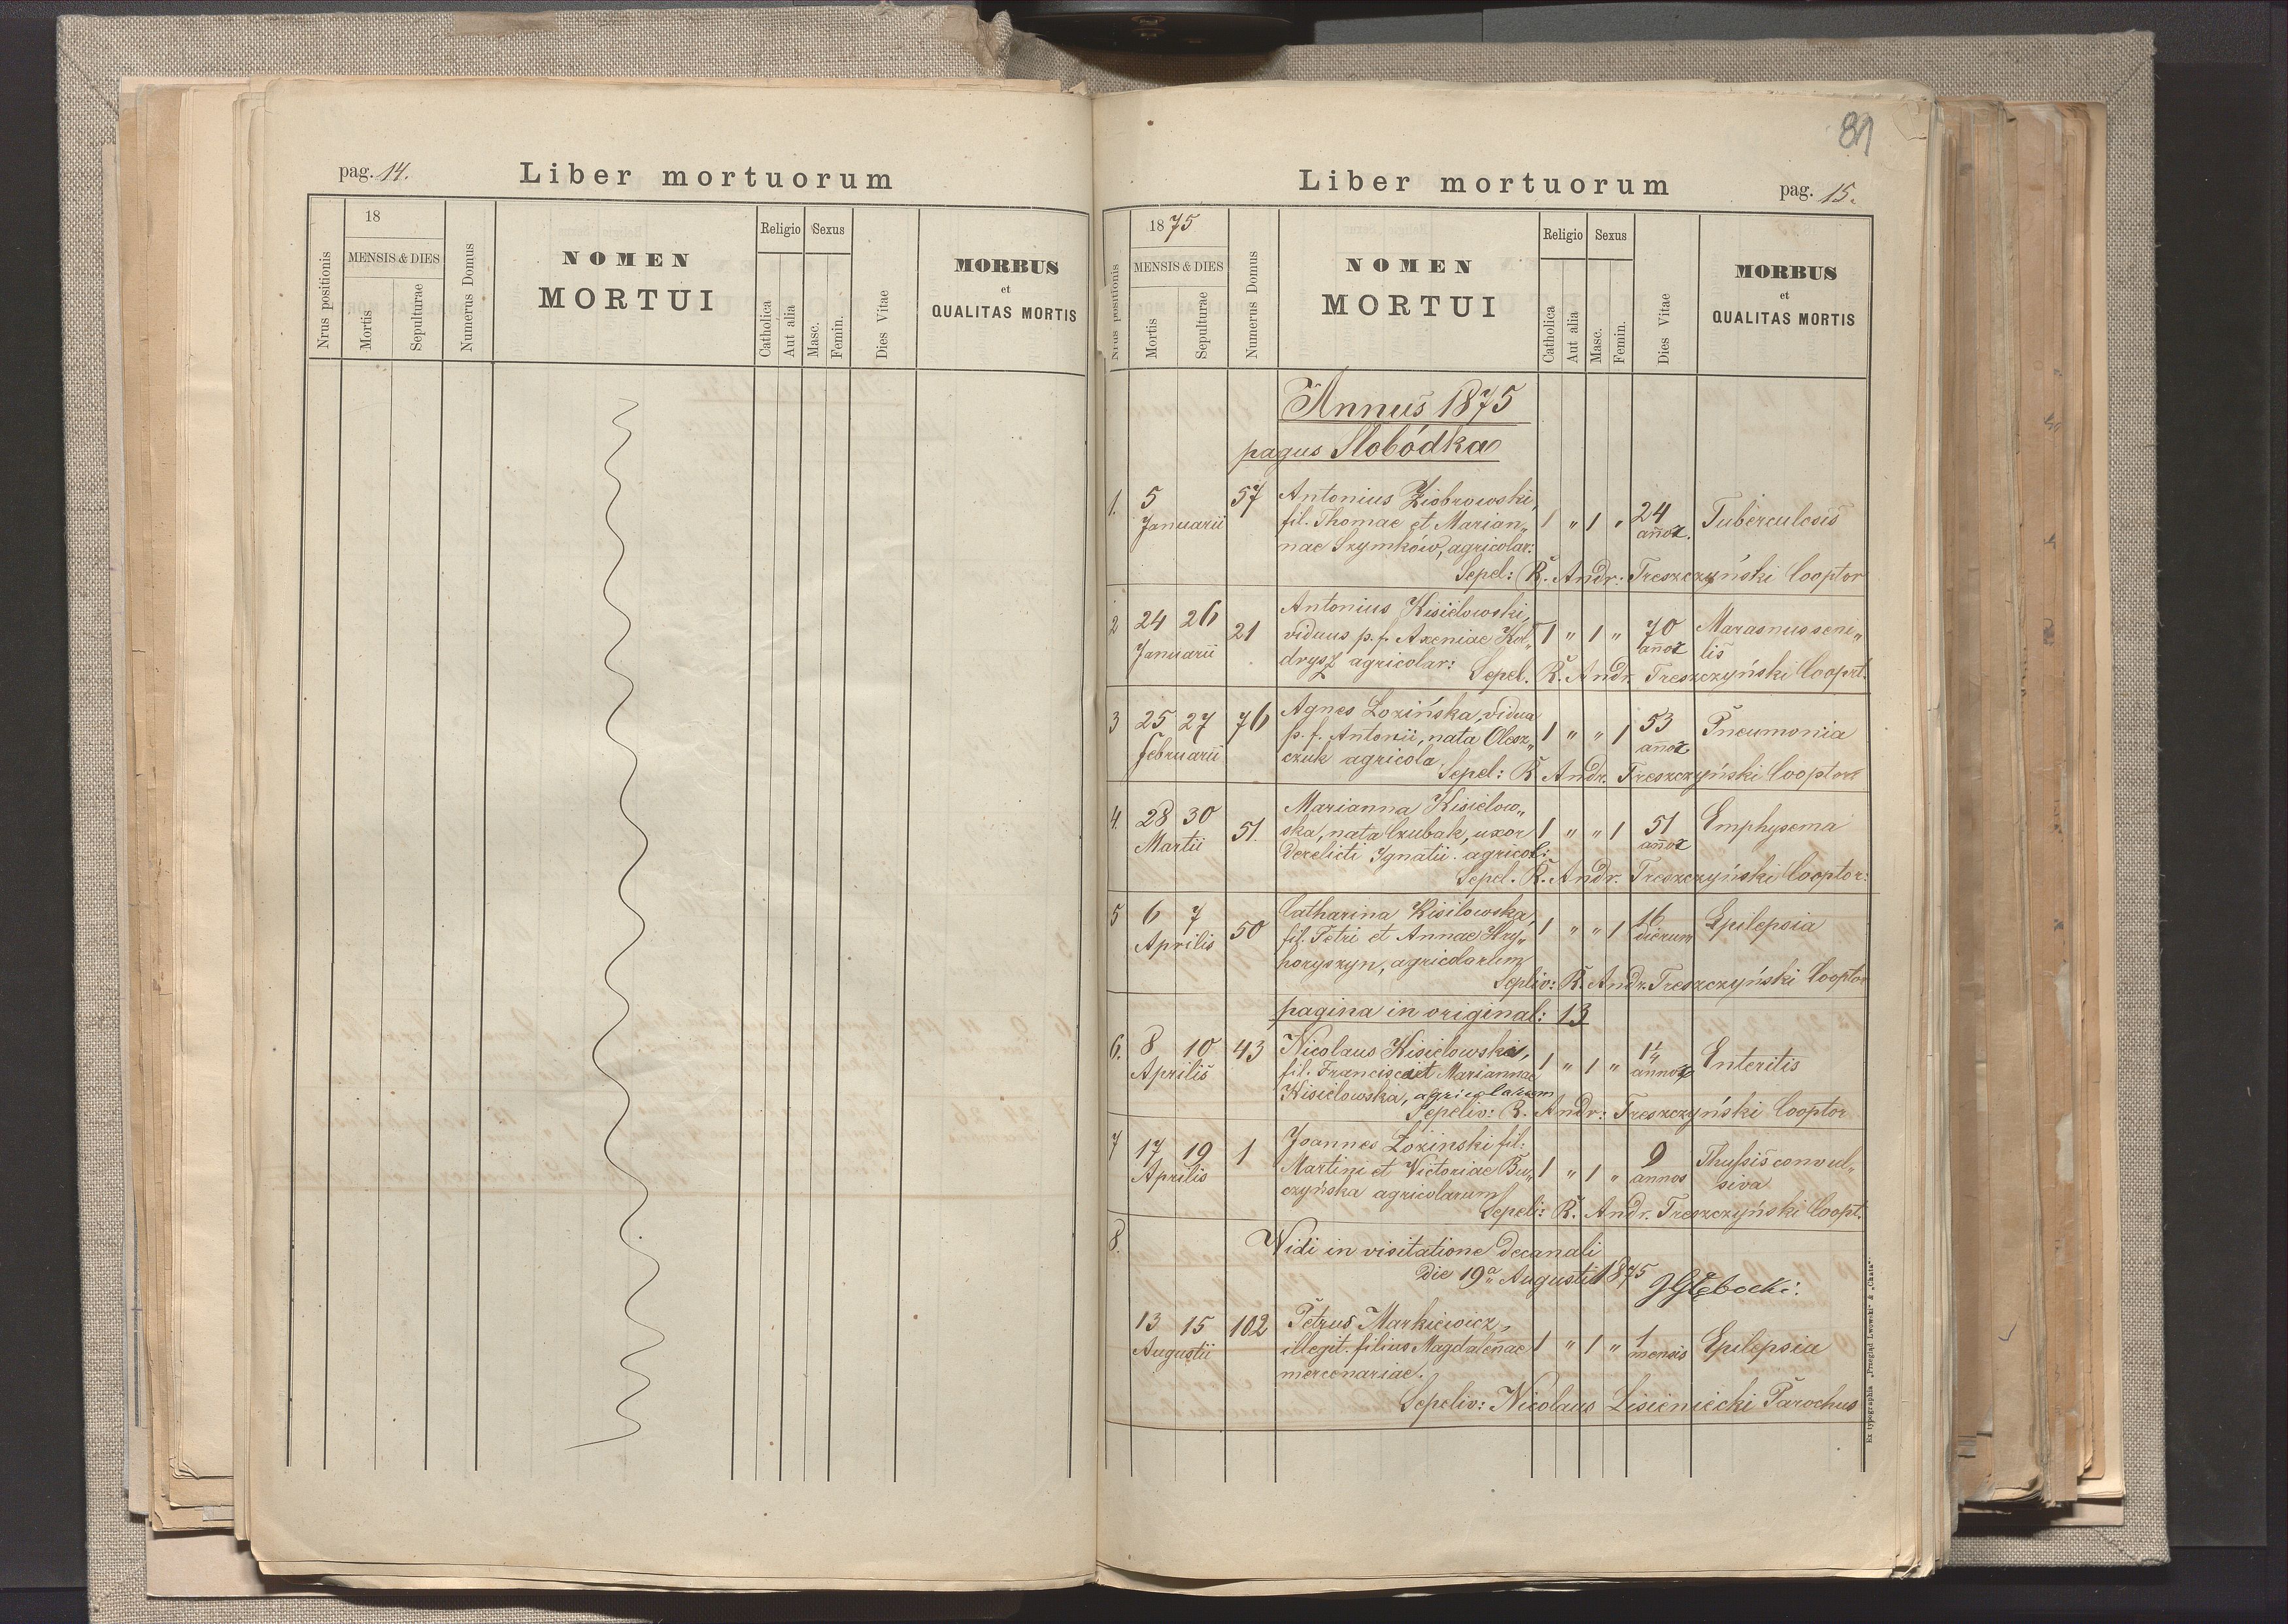 pag. 14.
Liber mortuorum
Nrus positionis
18
MENSIS & DIES
Mortis
Sepulturae
Numerus Domus
NOMEN
MORTUI
Religio
Catholica
Aut alia
Sexus
Masc.
Femin.
Dies Vitae
MORBUS
et
QUALITAS MORTIS
81
Liber mortuorum
pag. 15.
Nrus positionis
1875
MENSIS & DIES
Mortis
Sepulturae
Numerus Domus
NOMEN
MORTUI
Religio
Catholica
Aut alia
Sexus
Masc.
Femin.
Dies Vitae
MORBUS
et
QUALITAS MORTIS
Annus 1875
pagus Slobódka
1. 5 57 Antonius Ziobrowski,
Januarii fil. Thomae et Marian„ 1 „ 1 „ 24 Tuberculosis
nae Szymków, agricolar: annor.
Sepel: R. Andr. Treszczyński Cooptor
2 24 26 21 Antonius Kisielowski,
Januarii viduus p. f. Axeniae Kol„ 1 „ 1 „ 70 Marasmus seni„
drysz agricolar: annor lis
Sepel. R. Andr. Treszczyński Cooprt.
3 25 27 76 Agnes Lozińska, vidua
februarii p. f. Antonii, nata Olesz„ 1 „ „ 1 53 Pneumonia
czuk agricola annor
Sepel: R. Andr. Treszczyński Cooptor
4. 28 30 51. Marianna Kisielow„
Martii ska, nata Czubak, uxor 1 „ „ 1 51 Emphysema
derelicti Ignatii. agricol: annor
Sepel. R. Andr. Treszczyński Cooptor:
5 6 7 50 Catharina Kisilowska,
Aprilis fil. Petri et Annae Hry„ 1 „ „ 1 16 Epilepsia
horyszyn, agricolarum dierum
Sepliv: R. Andr. Treszczyński Cooptor
pagina in original: 13
6. 8 10 43 Nicolaus Kisielowski,
Aprilis fil. Francisci et Mariannae 1 „ 1 „ 1¼ Enteritis
Kisielowska, agricolarum annor
Sepeliv: R. Andr: Treszczyński Cooptor
7 17 19 1 Joannes Lozinski fil:
Aprilis Martini et Victoriae Bu„ 1 „ 1 „ 9 Thussis convul„
czyńska agricolarum annos siva
Sepeli: R. Andr. Treszczyński Coopt.
8. Widi in visitatione Decanali
Die 19ª Augusti 1875 Głębocki:
13 15 102 Petrus Markiewicz,
Augustii illegit. filius Magdalenae 1 „ 1 „ 1 Epilepsia
mercenariae. mensis
Sepeliv: Nicolaus Lisieniecki Parochus
Ex typographia „Przegląd Lwowski“ & „Chata“.